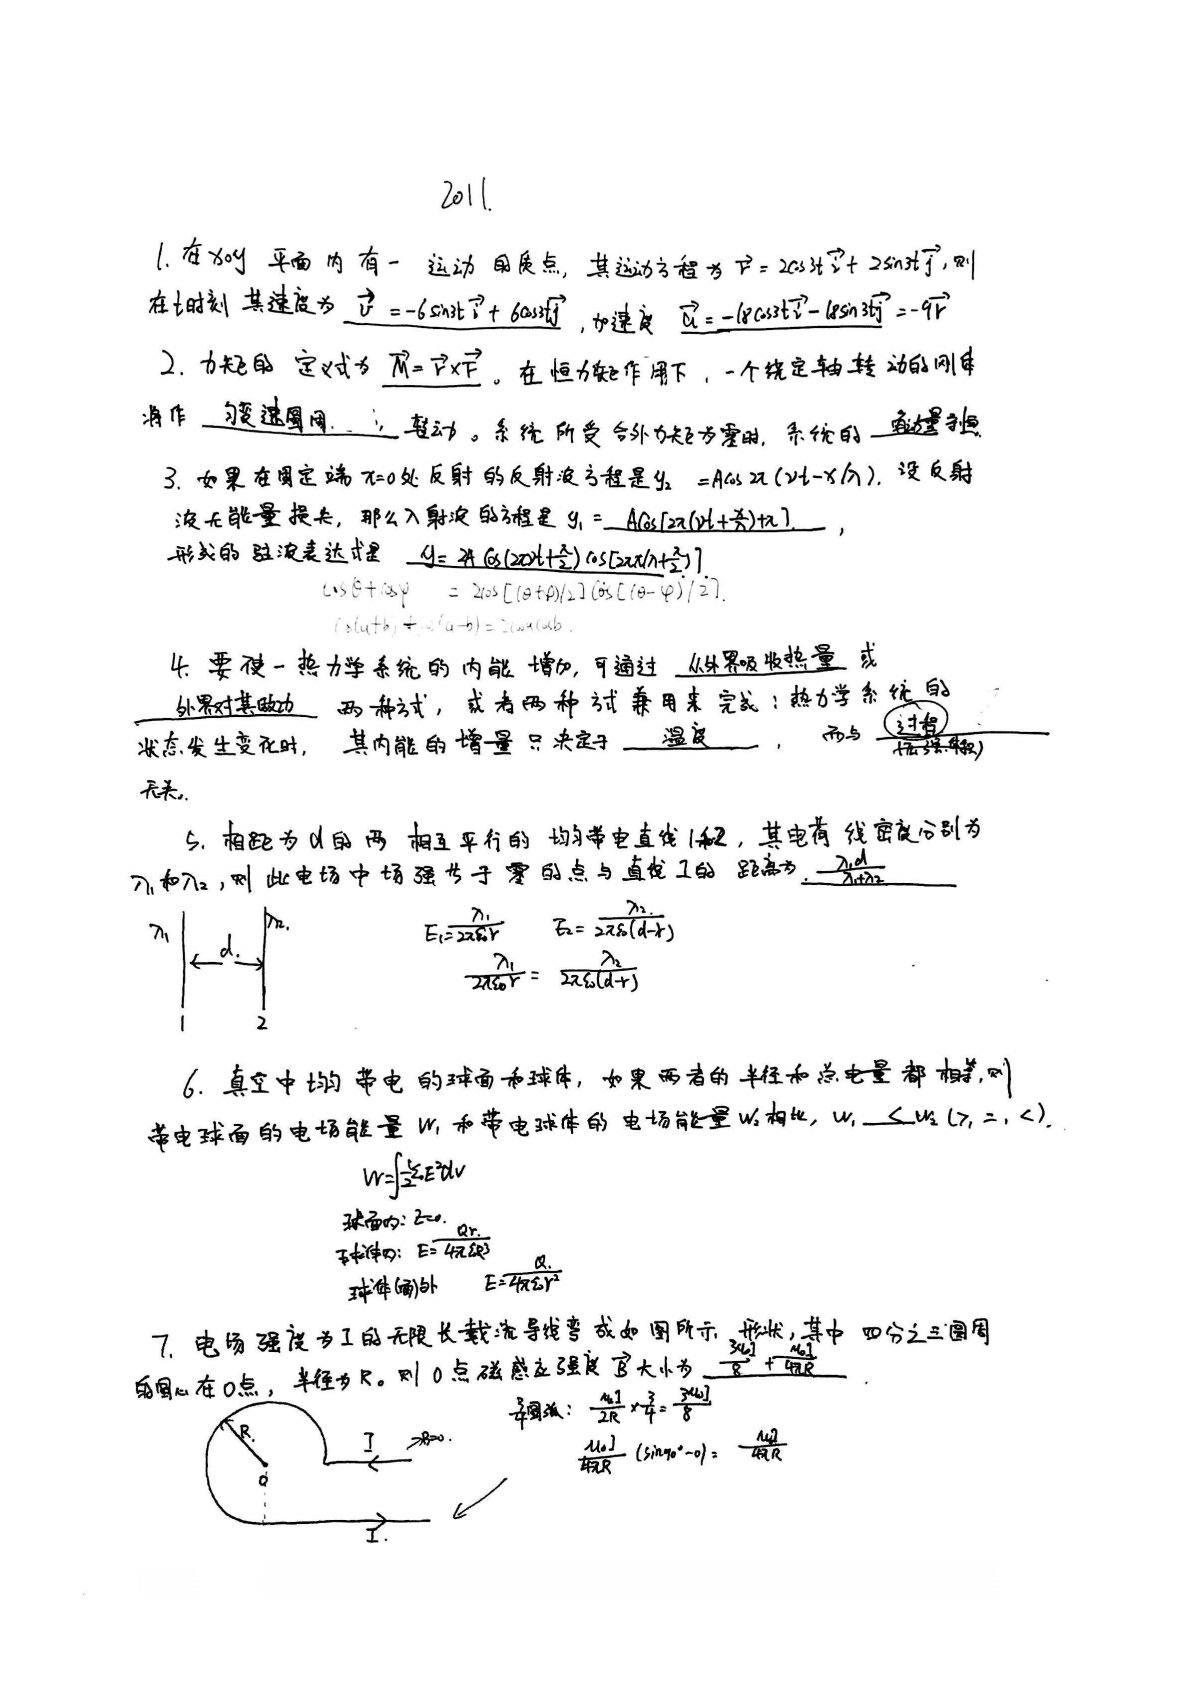 2011.
1. 在xoy 平面内有一运动的质点, 其运动方程为 r⃗ = 2cos3t i⃗ + 2sin3t j⃗, 则
在t时刻其速度为 v⃗ = -6sin3t i⃗ + 6cos3t j⃗ , 加速度 a⃗ = -18cos3t i⃗ - 18sin3t j⃗ = -9r⃗
2. 力矩的定义式为 M⃗ = r⃗ × F⃗ 。在恒力矩作用下, 一个绕定轴转动的刚体
将作 匀变速圆周 转动。系统所受合外力矩为零时, 系统的 角动量守恒
3. 如果在固定端x=0处反射的反射波方程是y₂ = Acos2π(νt-x/λ). 设反射
波无能量损失, 那么入射波的方程是 y₁ = Acos[2π(νt+x/λ)+π] ,
形成的驻波表达式是 y = 2A cos(2πνt+π/2) cos[2πx/λ+π/2]
cosθ+cosφ = 2cos[(θ+φ)/2]cos[(θ-φ)/2].
cos(a+b)+cos(a-b)=2cosacosb.
4. 要使一热力学系统的内能增加, 可通过 从外界吸收热量 或
外界对其做功 两种方式, 或者两种方式兼用来完成; 热力学系统的
状态发生变化时, 其内能的增量只决定于 温度 , 而与 过程
无关.
5. 相距为d的两相互平行的均匀带电直线1和2, 其电荷线密度分别为
λ₁和λ₂, 则此电场中场强等于零的点与直线I的距离为 λ₁d/(λ₁+λ₂)
λ₁ λ₂. E₁=λ₁/(2πε₀r) E₂=λ₂/(2πε₀(d-r))
d. λ₁/(2πε₀r) = λ₂/(2πε₀(d-r))
1 2
6. 真空中均匀带电的球面和球体, 如果两者的半径和总电量都相等, 则
带电球面的电场能量W₁和带电球体的电场能量W₂相比, W₁ < W₂ (>, =, <).
W=∫½ε₀E²dV
球面内: E=0.
球体内: E=Qr/(4πε₀R³)
球体(面)外 E=Q/(4πε₀r²)
7. 电场强度为I的无限长载流导线弯成如图所示形状, 其中四分之三圆周
的圆心在O点, 半径为R。则O点磁感应强度B⃗大小为 3μ₀I/8 + μ₀I/(4πR) .
¾圆弧: μ₀I/2R × 3/4 = 3μ₀I/8
R. I →B=0.
μ₀I/(4πR) (sin90°-0) = μ₀I/(4πR)
O
I.